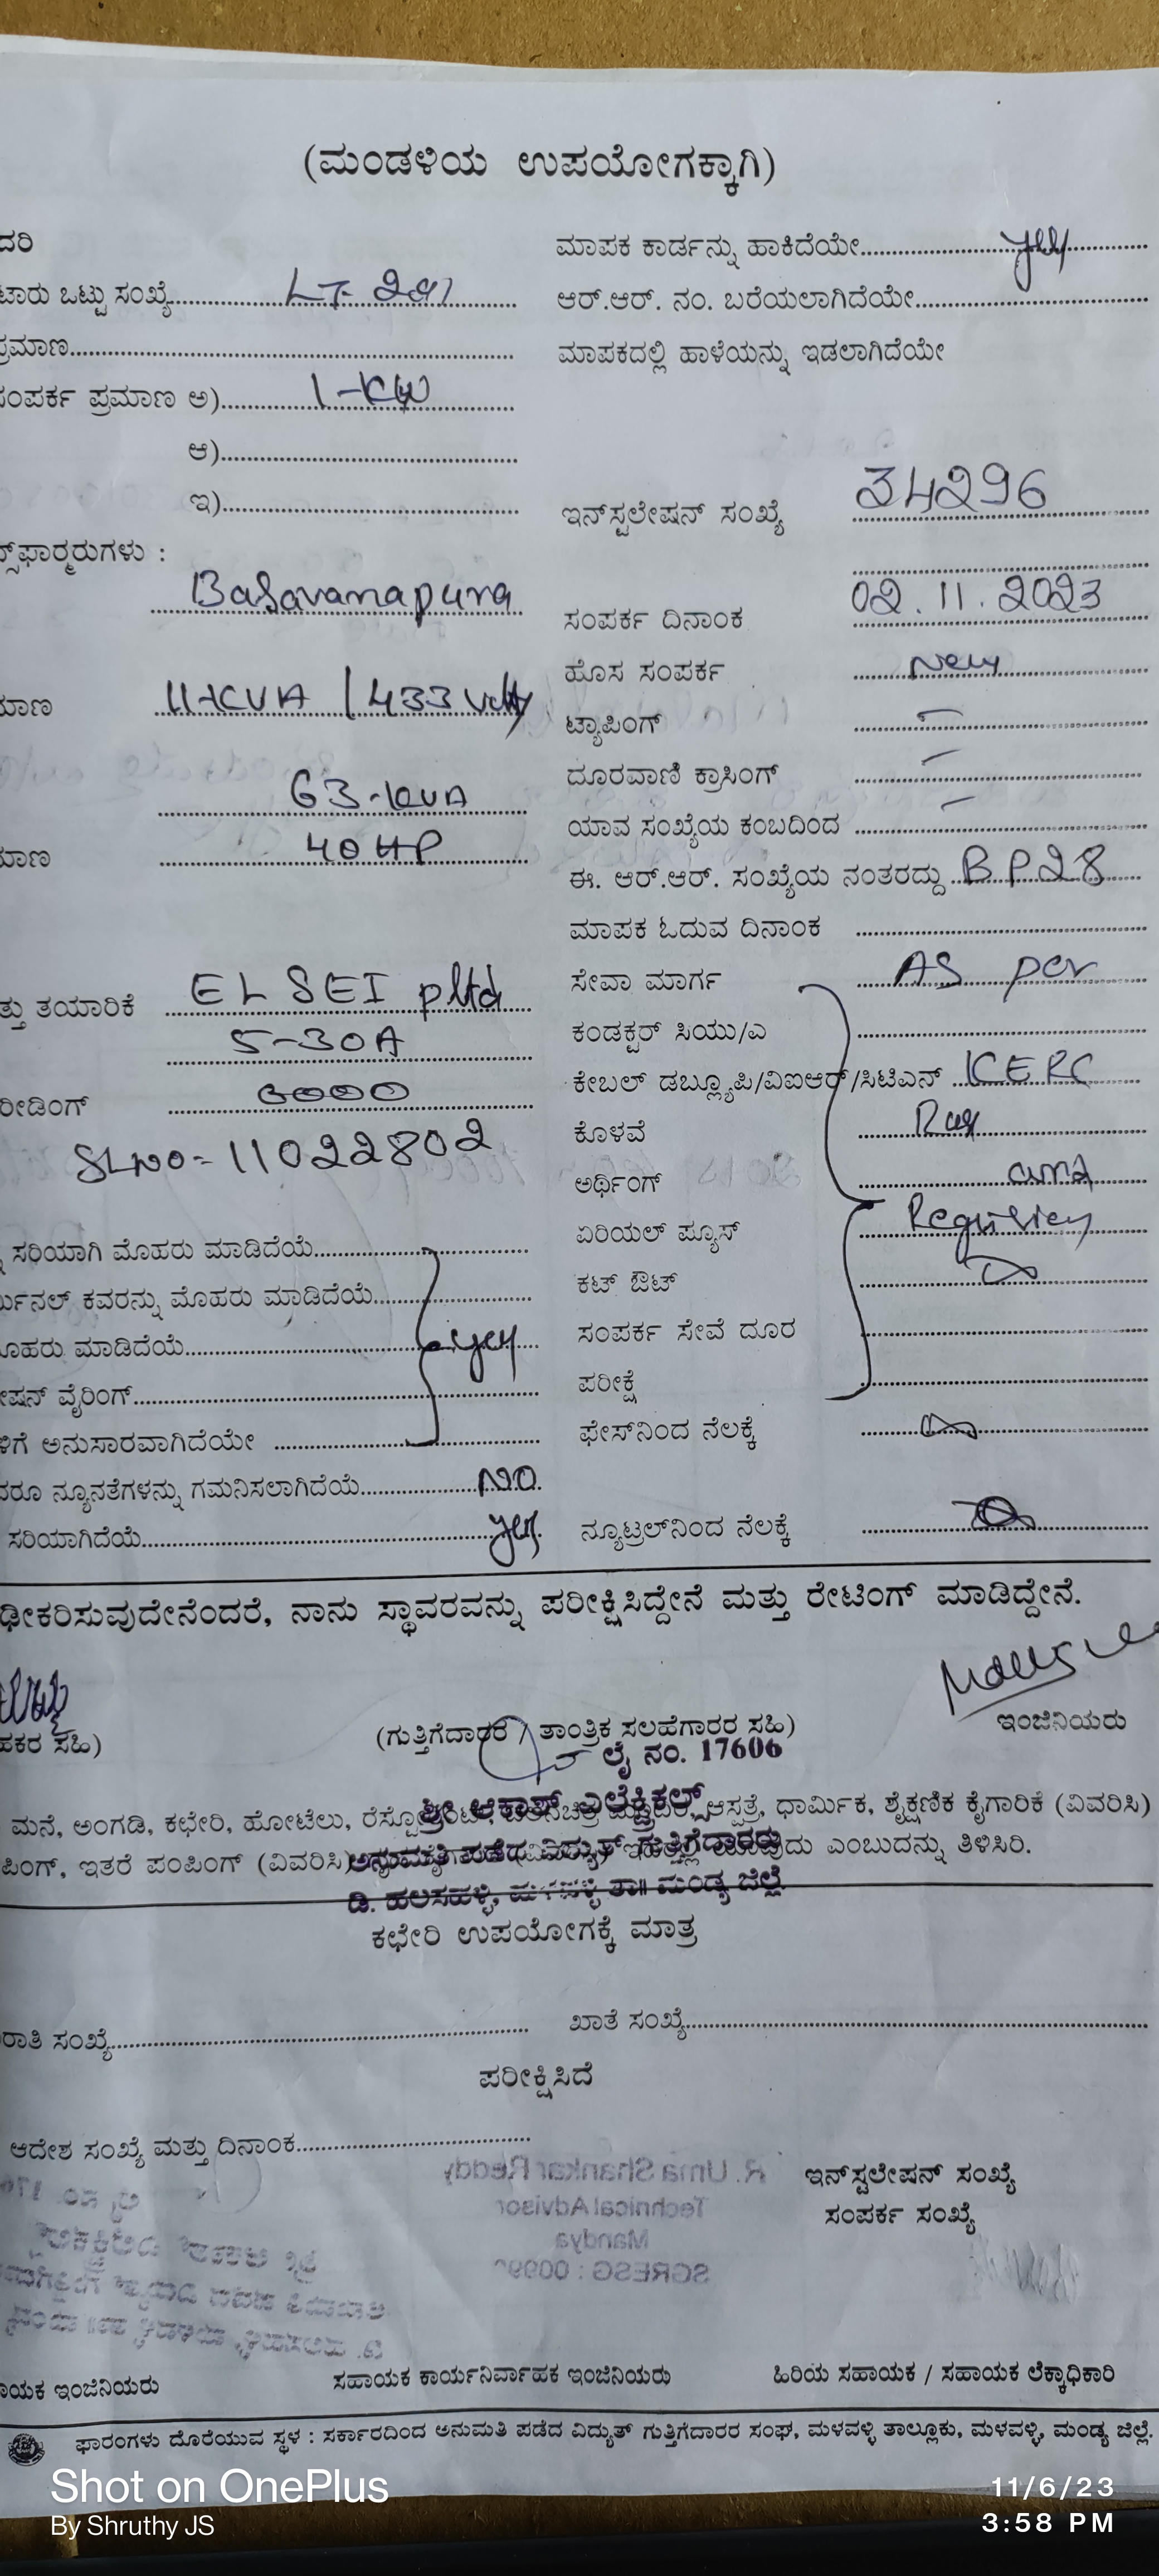 (ಮಂಡಳಿಯ ಉಪಯೋಗಕ್ಕಾಗಿ)
ದರಿ
ಮಾಪಕ ಕಾರ್ಡನ್ನು ಹಾಕಿದೆಯೇ.......... yes
ಟಾರು ಒಟ್ಟು ಸಂಖ್ಯೆ.......... LT-
ಆರ್.ಆರ್. ನಂ. ಬರೆಯಲಾಗಿದೆಯೇ..........
ಪ್ರಮಾಣ..........
ಮಾಪಕದಲ್ಲಿ ಹಾಳೆಯನ್ನು ಇಡಲಾಗಿದೆಯೇ
ಸಂಪರ್ಕ ಪ್ರಮಾಣ ಅ).......... 1-KW
ಆ)..........
ಇ)..........
ಇನ್‌ಸ್ಟಲೇಷನ್ ಸಂಖ್ಯೆ 34296
ನ್ಸ್‌ಫಾರ್ಮರುಗಳು :
Basavanapura
ಸಂಪರ್ಕ ದಿನಾಂಕ 02.11.2023
ಹೊಸ ಸಂಪರ್ಕ New
ಮಾಣ 11-KVA / 433 volts
ಟ್ಯಾಪಿಂಗ್ -
ದೂರವಾಣಿ ಕ್ರಾಸಿಂಗ್ -
63-KVA
ಯಾವ ಸಂಖ್ಯೆಯ ಕಂಬದಿಂದ -
ಮಾಣ 40 HP
ಈ. ಆರ್.ಆರ್. ಸಂಖ್ಯೆಯ ನಂತರದ್ದು BP28
ಮಾಪಕ ಓದುವ ದಿನಾಂಕ
ಸೇವಾ ಮಾರ್ಗ AS per
ತ್ತು ತಯಾರಿಕೆ ELSEI pltd
ಕಂಡಕ್ಟರ್ ಸಿಯು/ಎ
5-30A
ಕೇಬಲ್ ಡಬ್ಲ್ಯೂಪಿ/ವಿಐಆರ್/ಸಿಟಿಎನ್ KERC
ರೀಡಿಂಗ್
ಕೊಳವೆ
SLNO- 11022802
ಅರ್ಥಿಂಗ್ and
ಏರಿಯಲ್ ಫ್ಯೂಸ್
ಸರಿಯಾಗಿ ಮೊಹರು ಮಾಡಿದೆಯೆ..........
ಕಟ್ ಔಟ್
ರ್ಮಿನಲ್ ಕವರನ್ನು ಮೊಹರು ಮಾಡಿದೆಯೆ..........
ಸಂಪರ್ಕ ಸೇವೆ ದೂರ
ೊಹರು ಮಾಡಿದೆಯೆ.......... yes
ಪರೀಕ್ಷೆ
ೇಷನ್ ವೈರಿಂಗ್..........
ಫೇಸ್‌ನಿಂದ ನೆಲಕ್ಕೆ
ಳಿಗೆ ಅನುಸಾರವಾಗಿದೆಯೇ ..........
ದರೂ ನ್ಯೂನತೆಗಳನ್ನು ಗಮನಿಸಲಾಗಿದೆಯೆ.......... NO
ಸರಿಯಾಗಿದೆಯೆ.......... yes
ನ್ಯೂಟ್ರಲ್‌ನಿಂದ ನೆಲಕ್ಕೆ
ಢೀಕರಿಸುವುದೇನೆಂದರೆ, ನಾನು ಸ್ಥಾವರವನ್ನು ಪರೀಕ್ಷಿಸಿದ್ದೇನೆ ಮತ್ತು ರೇಟಿಂಗ್ ಮಾಡಿದ್ದೇನೆ.
ಹಕರ ಸಹಿ)
(ಗುತ್ತಿಗೆದಾರರ / ತಾಂತ್ರಿಕ ಸಲಹೆಗಾರರ ಸಹಿ)
ಇಂಜಿನಿಯರು
ಲೈ ನಂ. 17606
ಶ್ರೀ ಆಕಾಶ್ ಎಲೆಕ್ಟ್ರಿಕಲ್ಸ್
ಮನೆ, ಅಂಗಡಿ, ಕಛೇರಿ, ಹೋಟೆಲು, ಆಸ್ಪತ್ರೆ, ಧಾರ್ಮಿಕ, ಶೈಕ್ಷಣಿಕ ಕೈಗಾರಿಕೆ (ವಿವರಿಸಿ)
ಅನುಮತಿ ಪಡೆದ ವಿದ್ಯುತ್ ಗುತ್ತಿಗೆದಾರರು
ಪಿಂಗ್, ಇತರೆ ಪಂಪಿಂಗ್ (ವಿವರಿಸಿ) ಎಂಬುದನ್ನು ತಿಳಿಸಿರಿ.
ಡಿ. ಹಲಸಹಳ್ಳಿ, ತಾ|| ಮಂಡ್ಯ ಜಿಲ್ಲೆ
ಕಛೇರಿ ಉಪಯೋಗಕ್ಕೆ ಮಾತ್ರ
ರಾತಿ ಸಂಖ್ಯೆ..........
ಖಾತೆ ಸಂಖ್ಯೆ..........
ಪರೀಕ್ಷಿಸಿದೆ
ಆದೇಶ ಸಂಖ್ಯೆ ಮತ್ತು ದಿನಾಂಕ..........
R. Uma Shankar Reddy
Technical Advisor
Mandya
ಇನ್‌ಸ್ಟಲೇಷನ್ ಸಂಖ್ಯೆ
ಸಂಪರ್ಕ ಸಂಖ್ಯೆ
ಾಯಕ ಇಂಜಿನಿಯರು
ಸಹಾಯಕ ಕಾರ್ಯನಿರ್ವಾಹಕ ಇಂಜಿನಿಯರು
ಹಿರಿಯ ಸಹಾಯಕ / ಸಹಾಯಕ ಲೆಕ್ಕಾಧಿಕಾರಿ
ಫಾರಂಗಳು ದೊರೆಯುವ ಸ್ಥಳ : ಸರ್ಕಾರದಿಂದ ಅನುಮತಿ ಪಡೆದ ವಿದ್ಯುತ್ ಗುತ್ತಿಗೆದಾರರ ಸಂಘ, ಮಳವಳ್ಳಿ ತಾಲ್ಲೂಕು, ಮಳವಳ್ಳಿ, ಮಂಡ್ಯ ಜಿಲ್ಲೆ.
Shot on OnePlus
By Shruthy JS
11/6/23
3:58 PM